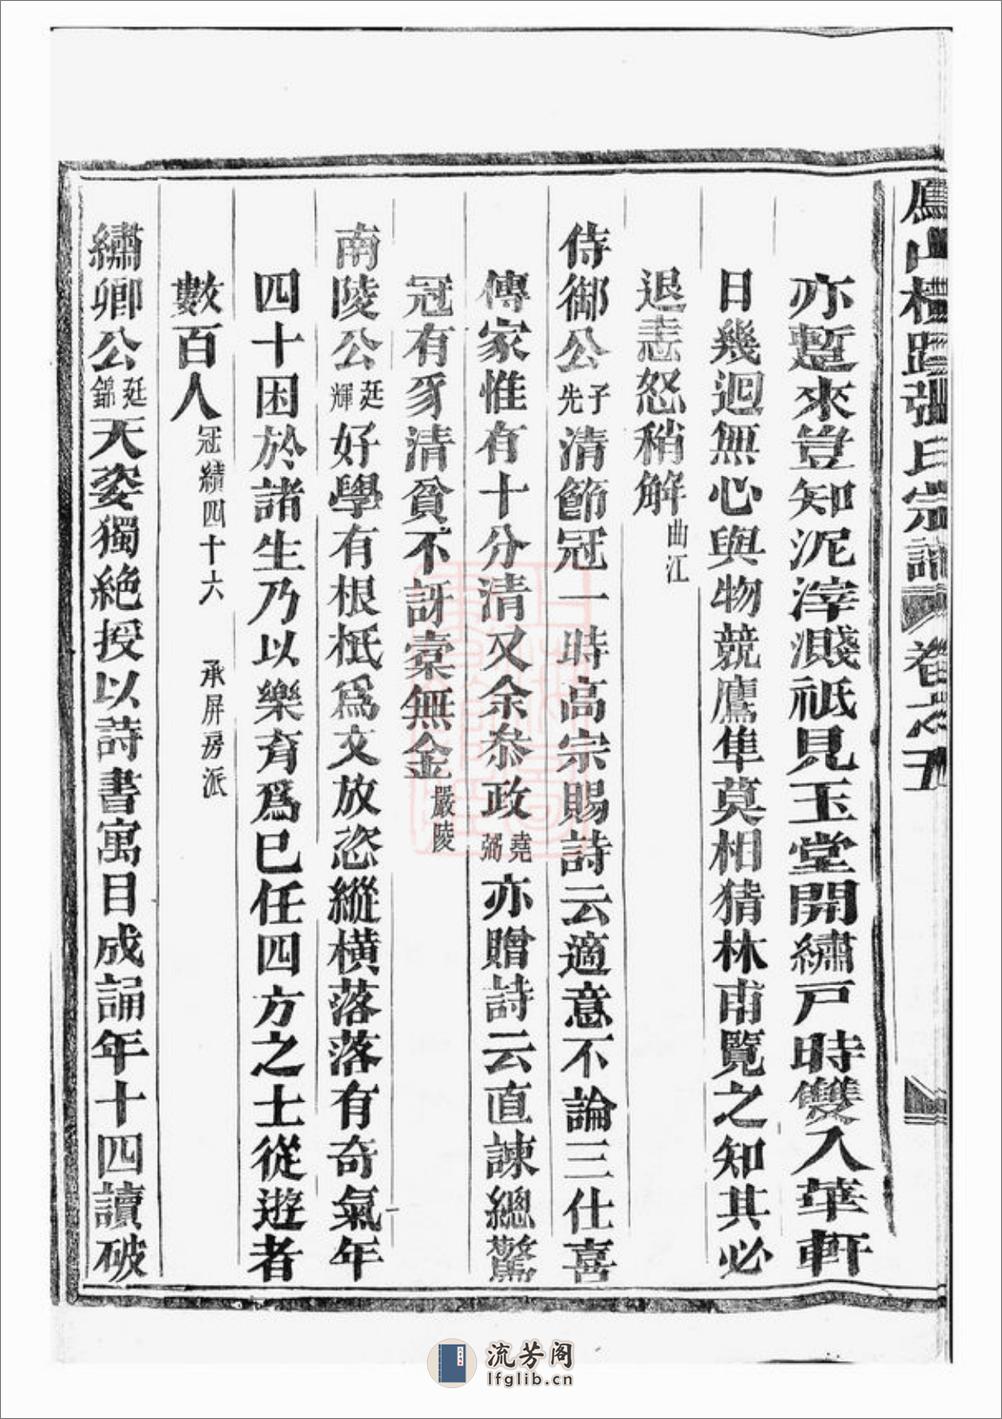 張氏宗譜 卷之五
亦蹔來豈知泥滓濺祇見玉堂開繡戸時雙入華軒
日幾迴無心與物競鷹隼莫相猜林甫覽之知其必
退恚怒稍解曲江
侍御公子先清節冠一時高宗賜詩云適意不論三仕喜
傳家惟有十分清又余叅政堯弼亦贈詩云直諫總驚
冠有豸清貧不訝槖無金嚴陵
南陵公廷輝好學有根柢爲文放恣縱橫落落有奇氣年
四十困於諸生乃以樂育爲已任四方之士從遊者
數百人冠績四十六 承屏房派
繡卿公廷錦天姿獨絶授以詩書寓目成誦年十四讀破
流芳阁
lfglib.cn